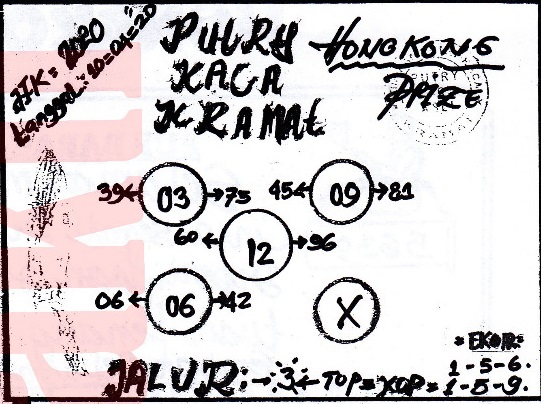 JIK = 2020
Tanggal: 10=04=20
PUTRY HONGKONG
KACA PRIZE
KRAMAt
39 03 75 45 09 81
60 12 96
06 06 42 X
= EKOR:
1-5-6.
JALUR: 3 TOP = XOP = 1-5-9.